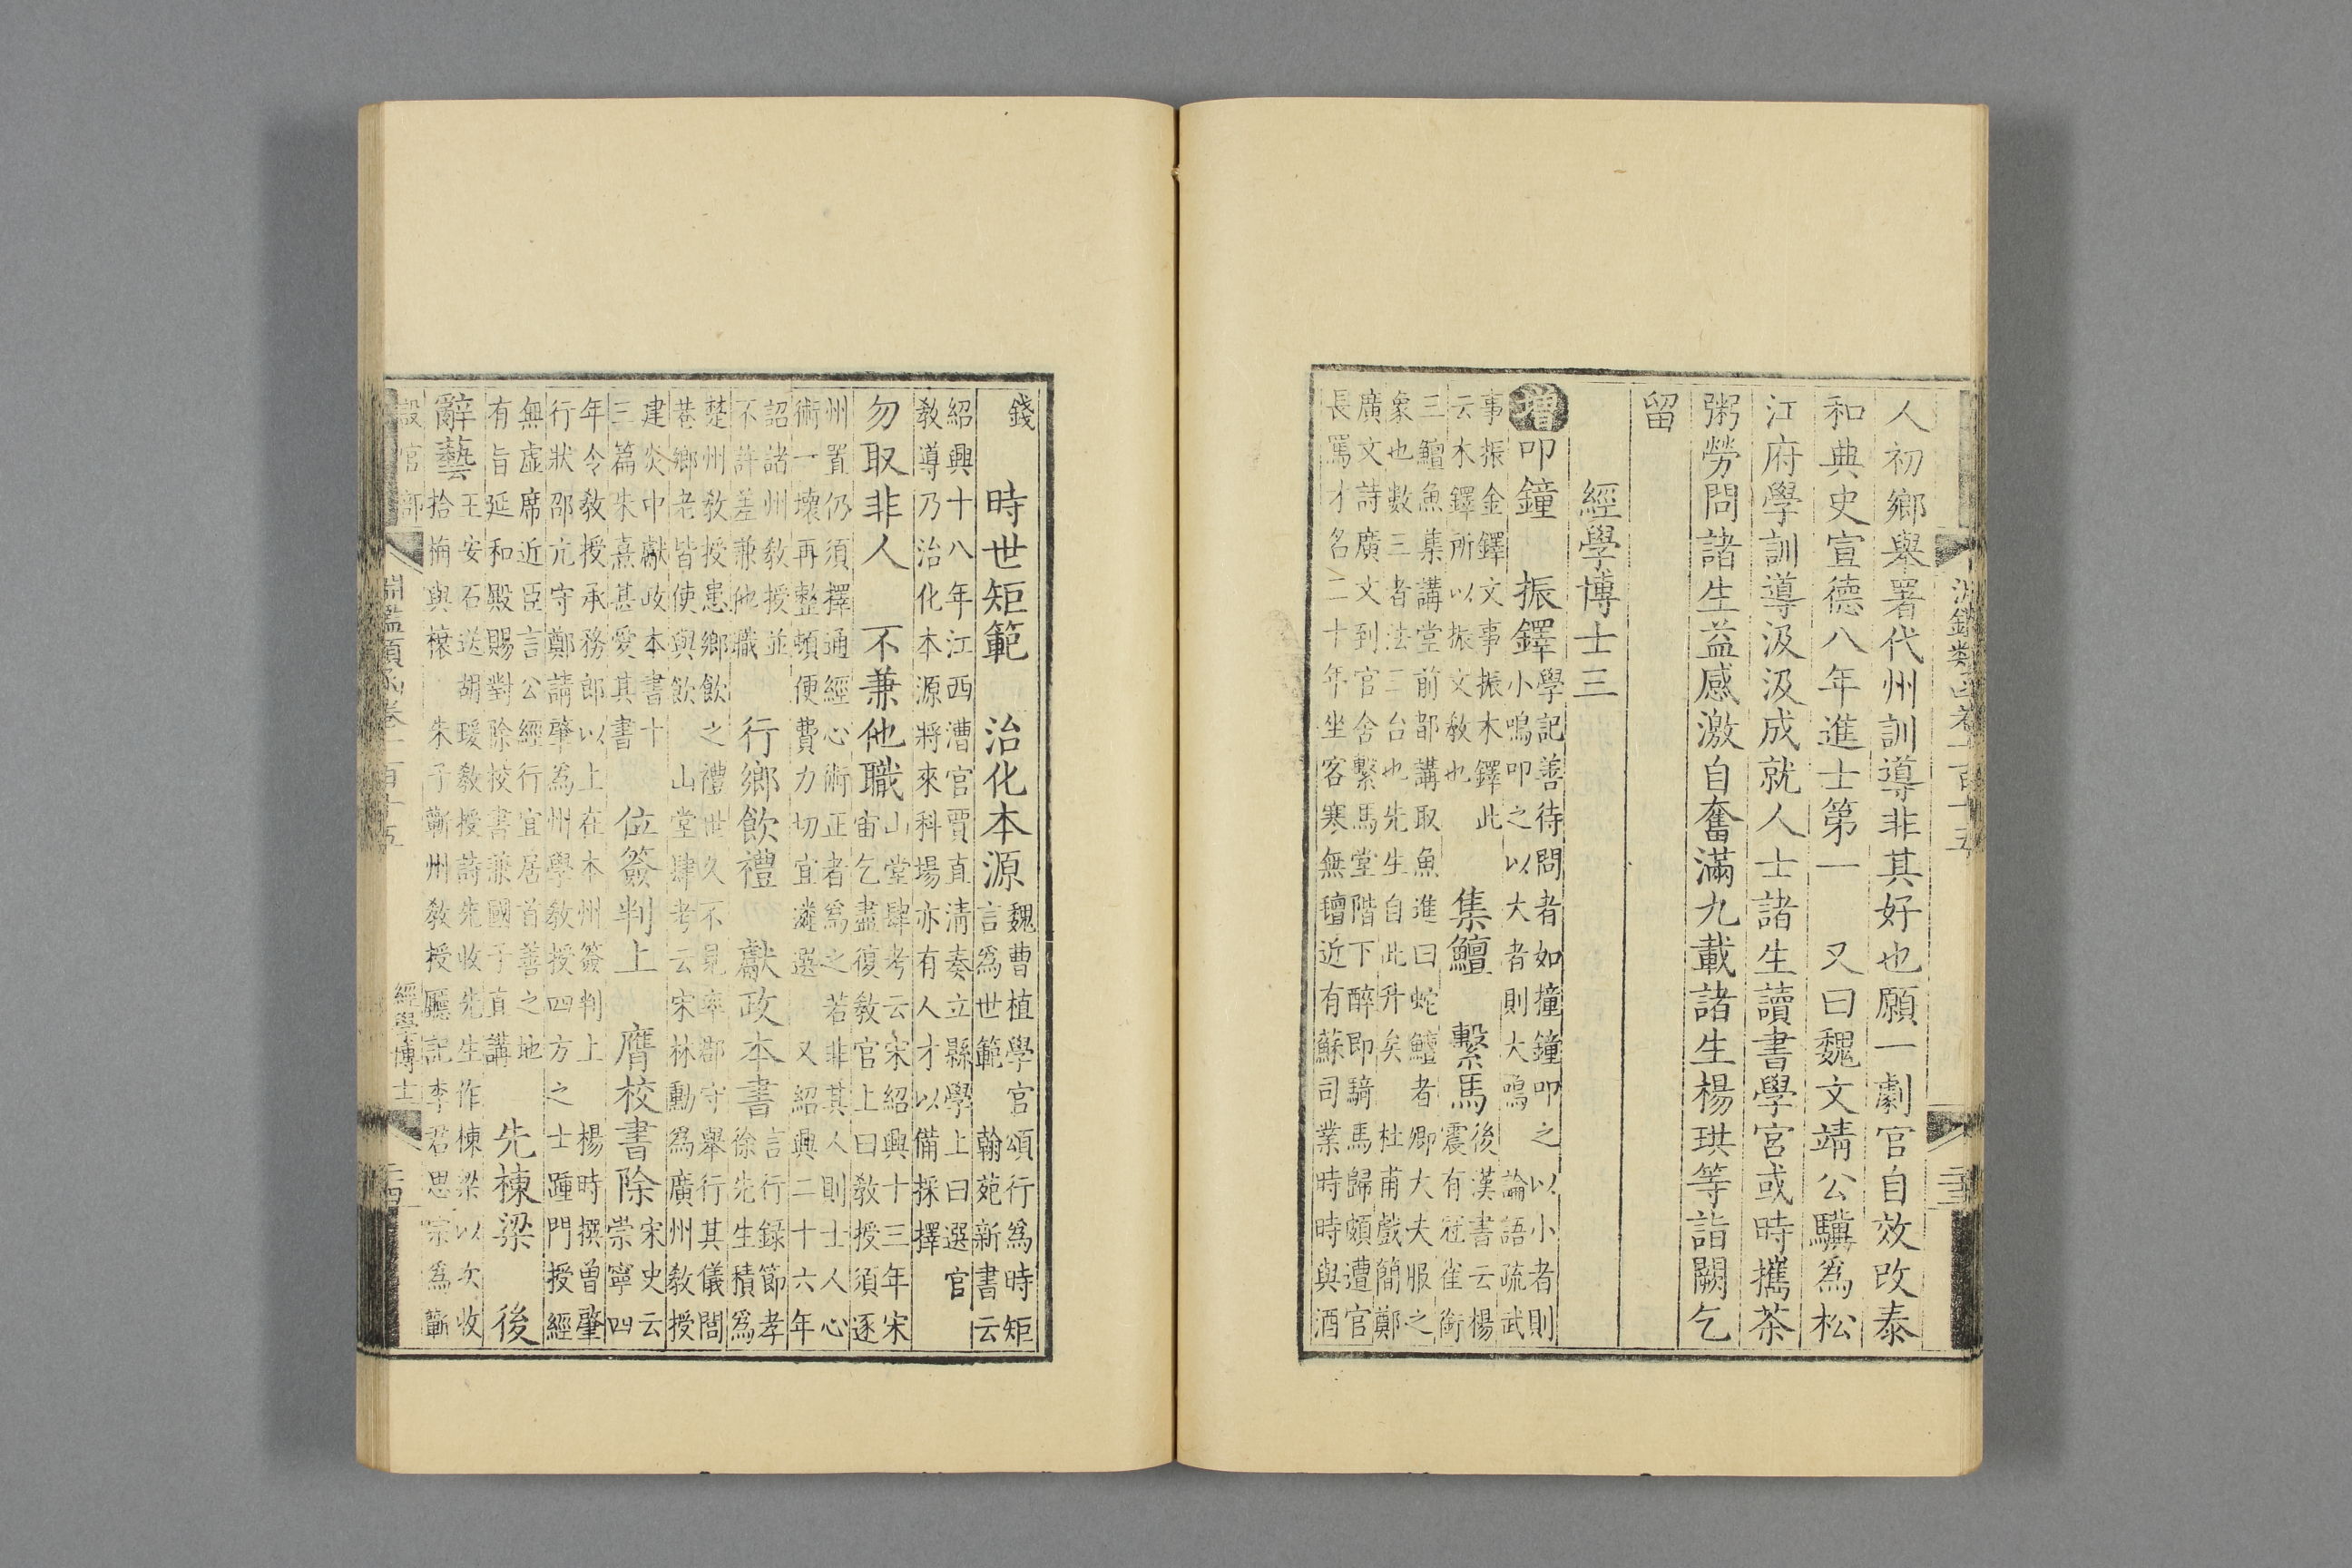 淵鑑類函卷一百十五
人初鄉舉署代州訓導非其好也願一劇官自效改泰
和典史宣德八年進士第一　又曰魏文靖公驥為松
江府學訓導汲汲成就人士諸生讀書學宮或時攜茶
粥勞問諸生益感激自奮滿九載諸生楊珙等詣闕乞
留
經學博士三
增叩鐘　振鐸
學記善待問者如撞鐘叩之以小者則
小鳴叩之以大者則大鳴　論語疏武
事振金鐸文事振木鐸此
云木鐸所以振文敎也
集鱣　繫馬
後漢書云楊
震有冠雀銜
三鱣魚集講堂前都講取魚進曰蛇鱓者卿大夫服之
象也數三者法三台也先生自此升矣　杜甫戲簡鄭
廣文詩廣文到官舍繫馬堂階下醉即騎馬歸頗遭官
長罵才名二十年坐客寒無氊近有蘇司業時時與酒
錢
時世矩範　治化本源
魏曹植學官頌行為時矩
言為世範　翰苑新書云
紹興十八年江西漕官賈直清奏立縣學上曰選官
敎導乃治化本源將來科場亦有人才以備採擇
勿取非人　不兼他職
山堂肆考云宋紹興十三年宋
宙乞盡復敎官上曰敎授須逐
州置仍須擇通經心術正者為之若非其人則士人心
術一壞再整頓便費力切宜遴選　又紹興二十六年
詔諸州敎授並
不許差兼他職
行鄉飲禮　獻政本書
言行録節孝
徐先生積為
楚州敎授患鄉飲之禮世久不見率郡守舉行其儀閭
巷鄉老皆使與飲　山堂肆考云宋林勳為廣州敎授
建炎中獻政本書十
三篇朱熹甚愛其書
位簽判上　膺校書除
宋史云
崇寧四
年令敎授承務郎以上在本州簽判上　楊時撰曾肇
行狀邵亢守鄭請肇為州學敎授四方之士踵門授經
無虛席近臣言公經行宜居首善之地
有旨延和殿賜對除校書兼國子直講
先棟梁　後
辭藝
王安石送胡瑗敎授詩先收先生作棟梁以次收
拾桷與榱　朱子蘄州敎授廳記李君思宗為蘄
設官部
淵鑑類函卷一百十五
經學博士
二四